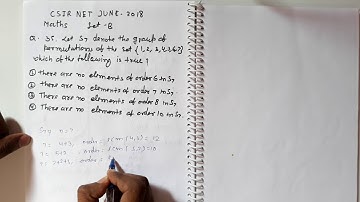 CSIR NET JUNE. 2018
Maths Set -B
Q. 35. Let S7 denote the group of
permutations of the set {1, 2, 3, 4, 5, 6, 7}
which of the following is true?
① There are no elements of order 6 in S7
② There are no elements of order 7 in S7
③ There are no elements of order 8 in S7
④ There are no elements of order 10 in S7.
7 = 4+3, order
7 = 5+2 order =10
order